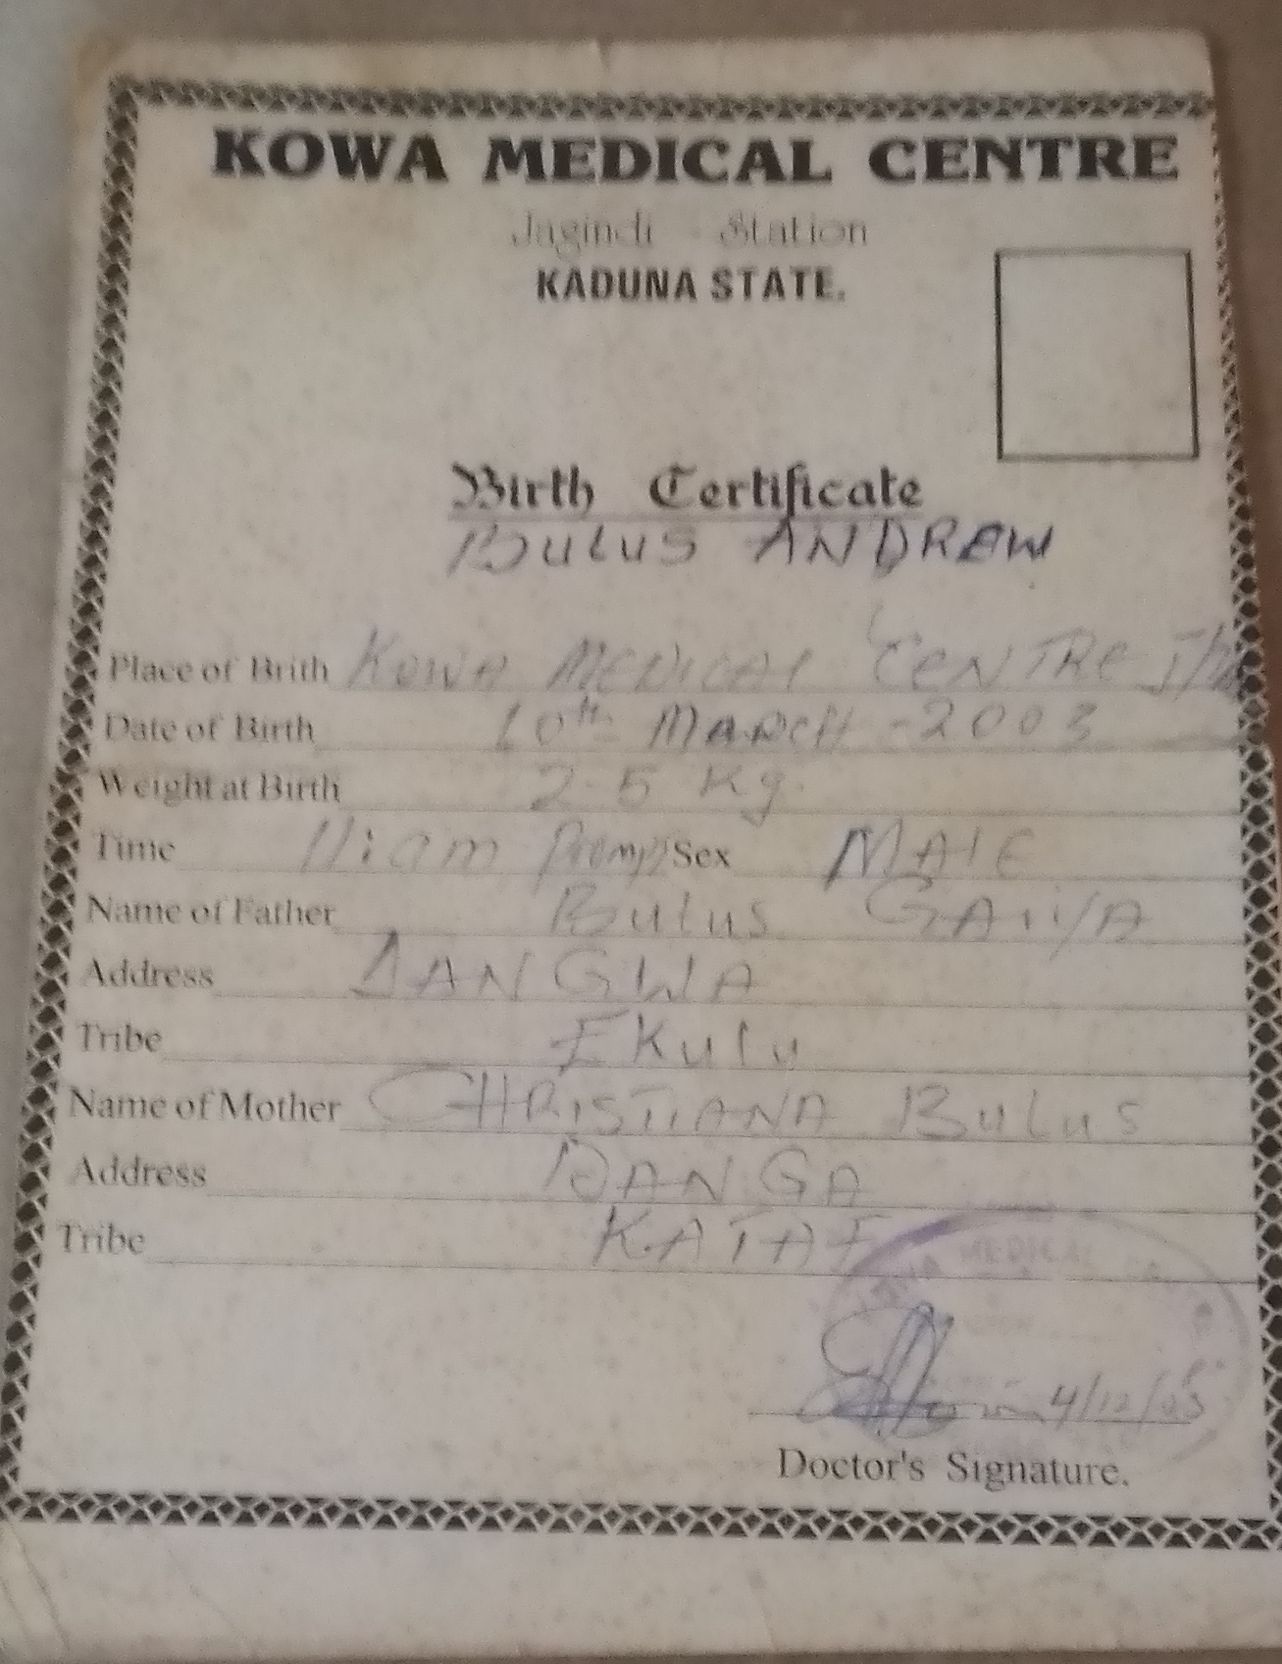 KOWA MEDICAL CENTRE
Jagindi - Station
KADUNA STATE.
Birth Certificate
BULUS ANDREW
Place of Brith KOWA MEDICAL CENTRE
Date of Birth 10th MARCH - 2003
Weight at Birth 2.5 Kg.
Time 11:am Sex MALE
Name of Father BULUS GAIYA
Address DANGWA
Tribe EKulu
Name of Mother CHRISTIANA BULUS
Address DANGA
Tribe KATAF
MEDICAL
4/12/05
Doctor's Signature.